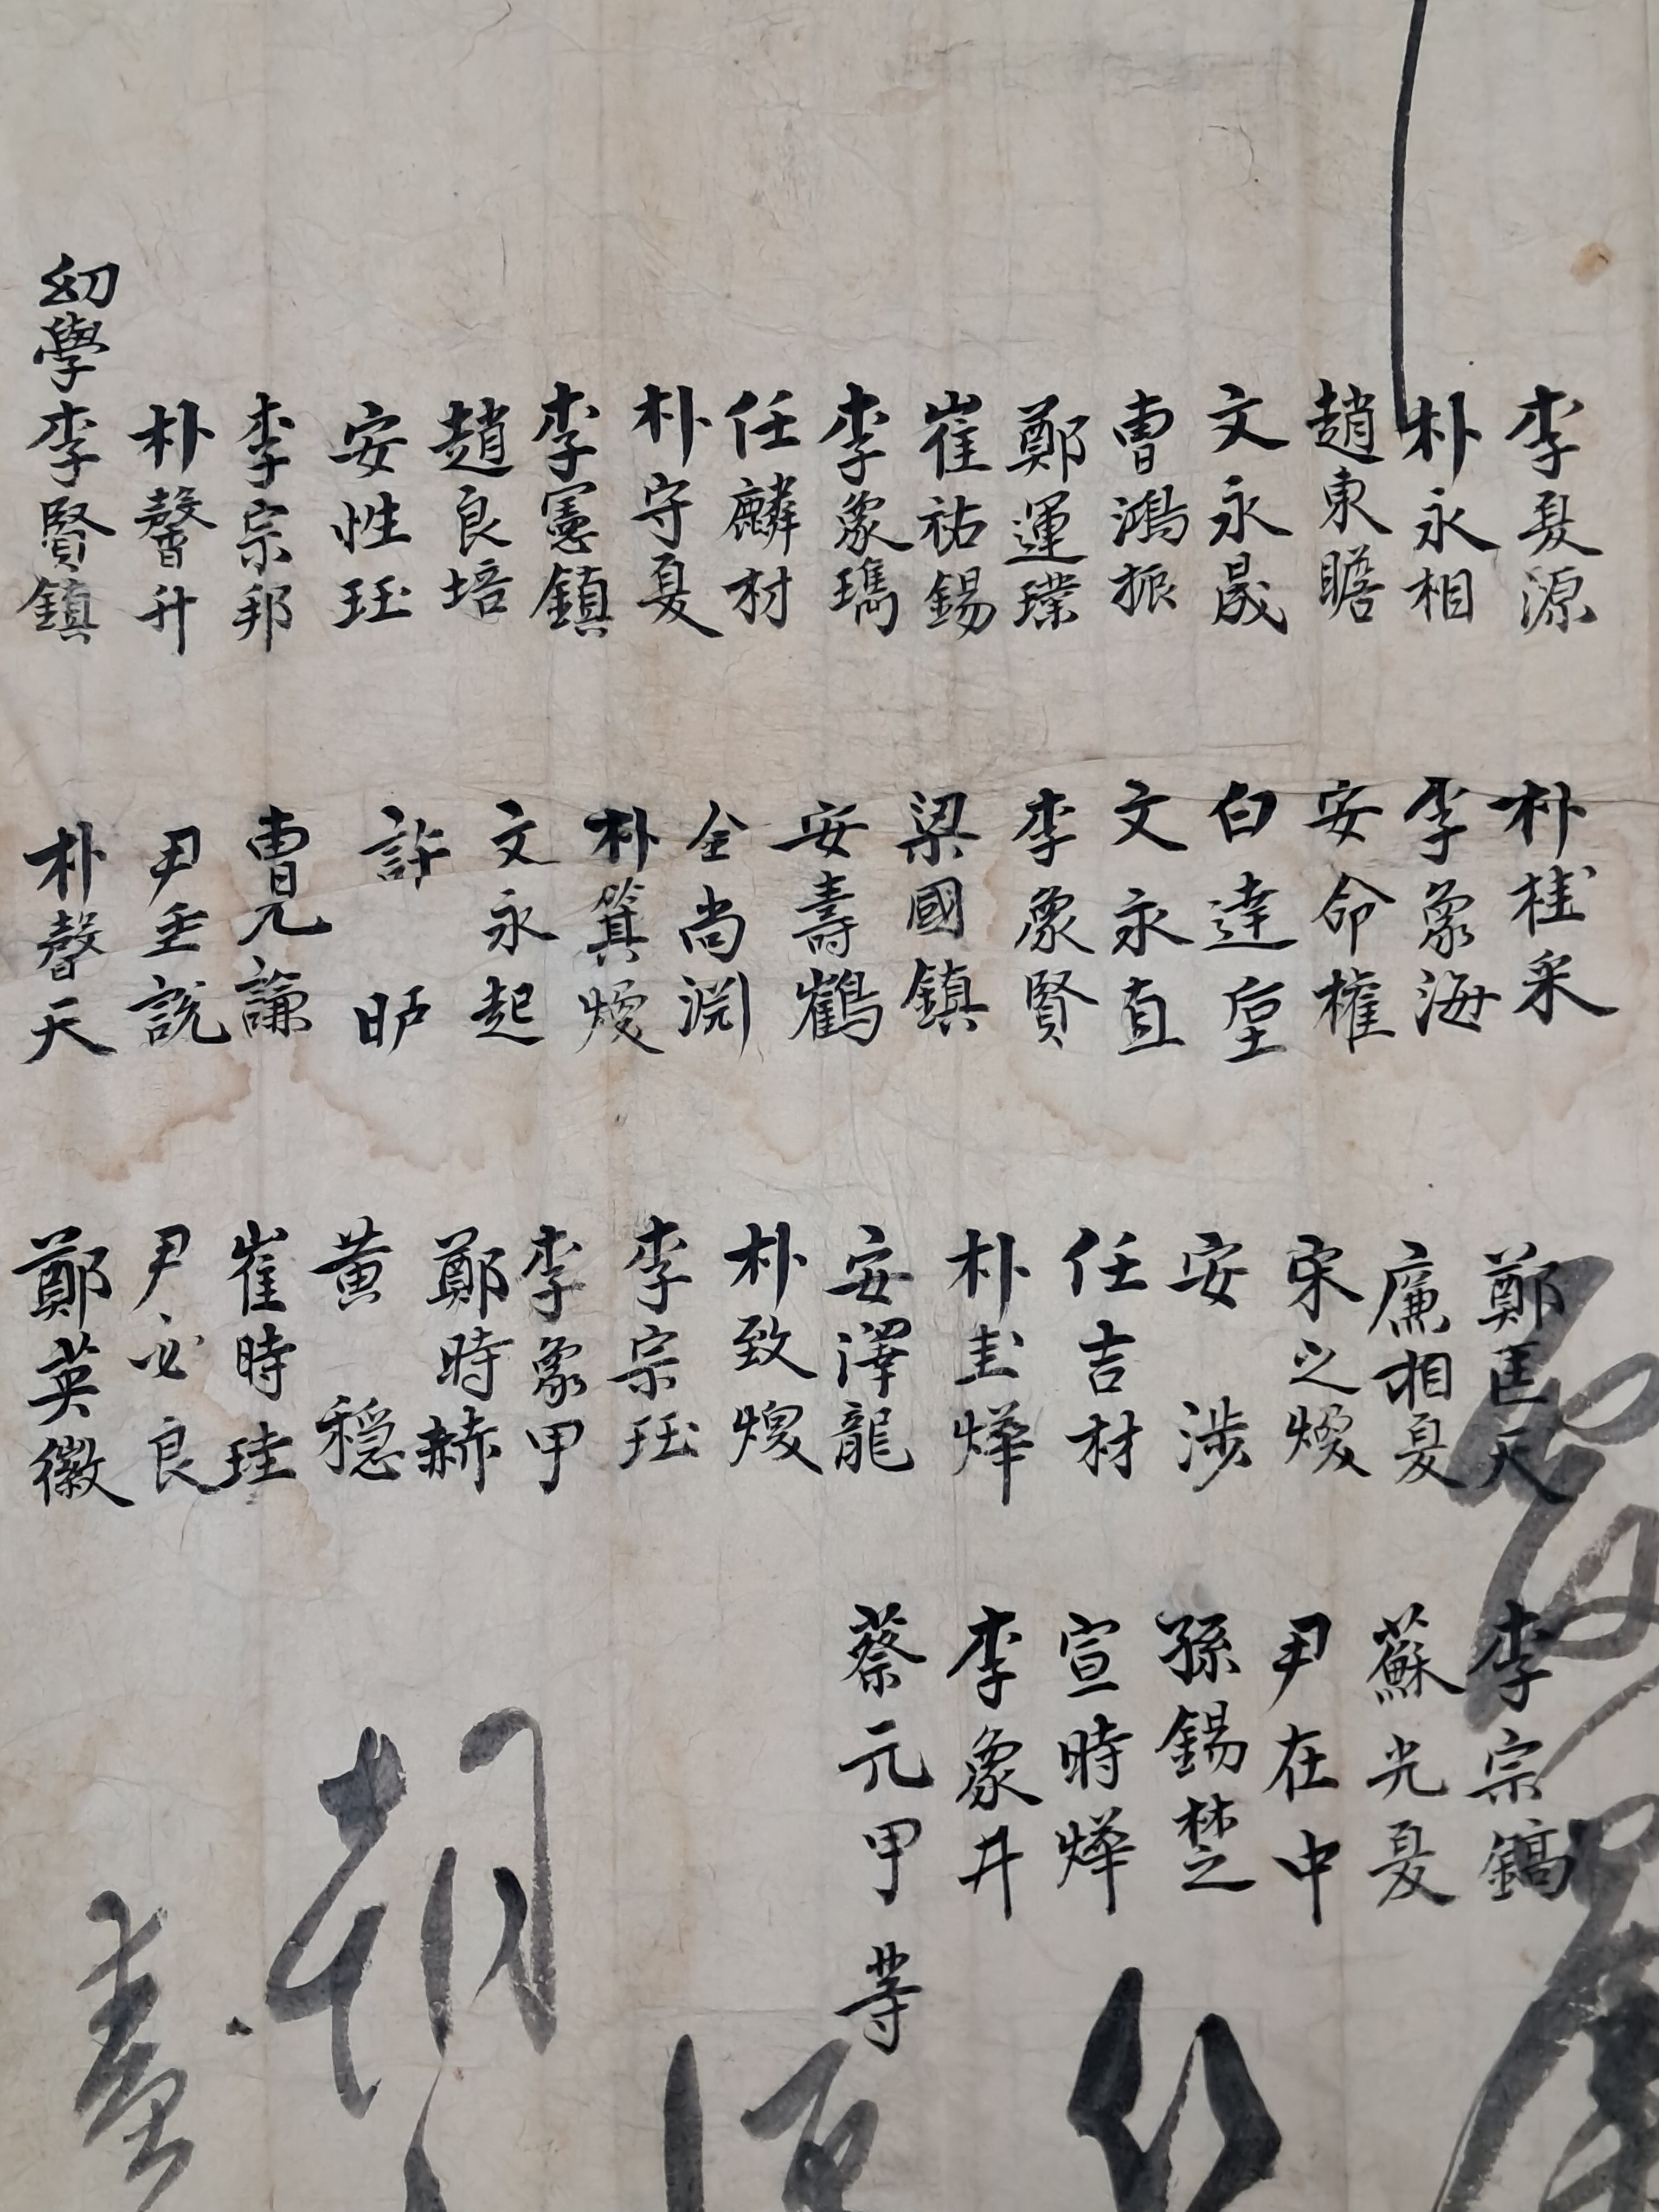 李夏源
朴永相
趙東瞻
文永晟
曺鴻振
鄭運璞
崔祐錫
李象
任麟材
朴守夏
李憲鎮
趙良培
安性珏
李宗邦
朴馨升
幼學李賢鎮
朴桂采
李象海
安命權
白達垕
文永直
李象賢
梁國鎮
安壽鶴
全尚淵
朴箕煥
文永起
許昈
曺克謙
尹垂說
朴馨天
鄭匡天
廉相夏
宋之煥
安涉
任吉材
朴圭燁
安澤龍
朴致煥
李宗珏
李象甲
鄭時赫
黃穩
崔時珪
尹必良
鄭英徽
李宗鎬
蘇光夏
尹在中
孫錫楚
宣時燁
李象井
蔡元甲 等